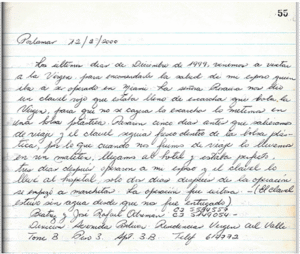 55
Palamar 12/8/2000
Los ultimos dias de Diciembre de 1999, venimos a visitar
a la Virgen para encomendarle la salud de mi esposo quien
iba a ser operado en Miami. La señora Rosario nos dio
un clavel rojo que estaba lleno de escarcha que bota la
Virgen, para que no se cayera la escarcha lo metimos en
una bolsa plástica. Pasaron cinco dias antes que salieramos
de viaje y el clavel seguia fresco dentro de la bolsa plás-
tica, por lo que cuando nos fuimos de viaje lo llevamos
en un maletin, llegamos al hotel y estaba perfecto.
Tres dias después operaron a mi esposo y el clavel lo
llevé al hospital, solo dos dias despues de la operación
se empezó a marchitar. La operación fue exitosa - (El clavel
estuvo sin agua desde que nos fue entregado)
Beatriz y José Rafael
Dirección Avenida Bolivar Residencias Vergen del Valle
Torre B Piso 3. Apt. 3.B Telf